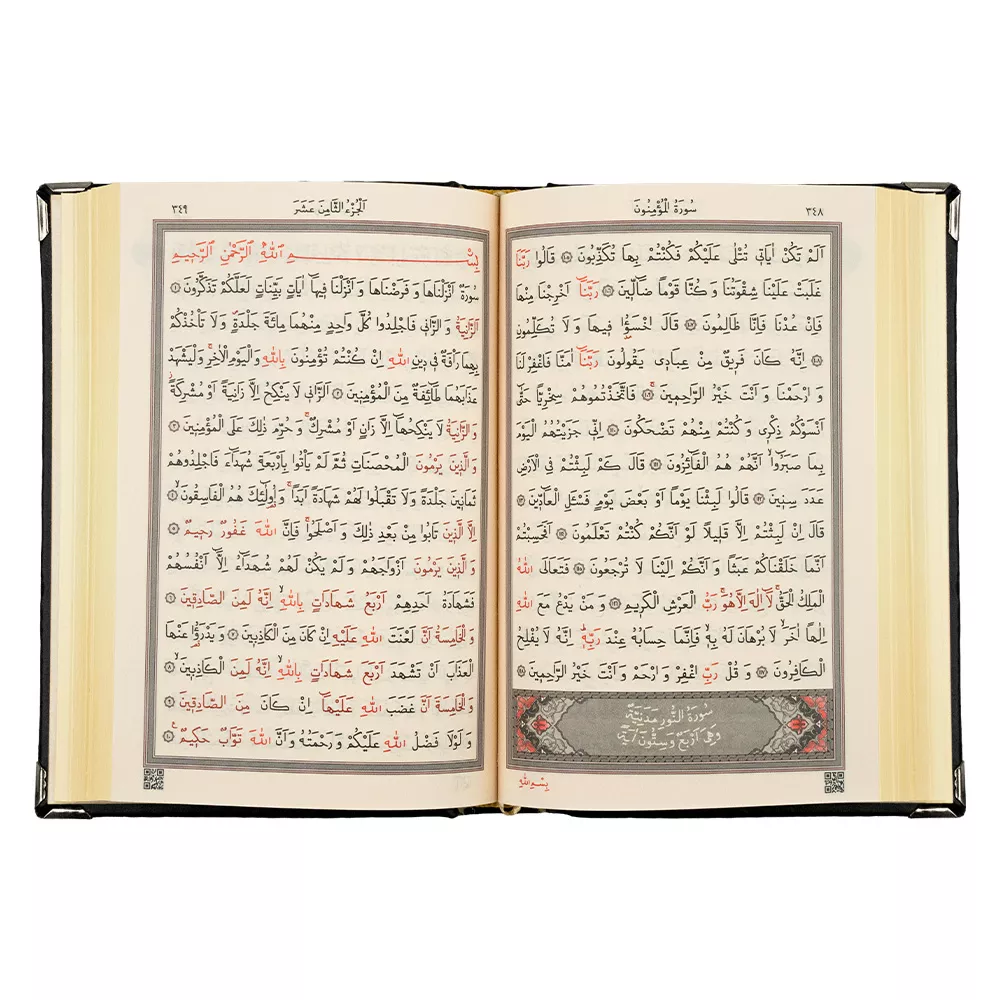 ٣٤٨
سُورَةُ الْمُؤْمِنُونَ
اَلَمْ تَكُنْ اٰيَاتٖي تُتْلٰى عَلَيْكُمْ فَكُنْتُمْ بِهَا تُكَذِّبُونَ ﴿١٠٥﴾ قَالُوا رَبَّنَا
غَلَبَتْ عَلَيْنَا شِقْوَتُنَا وَكُنَّا قَوْمًا ضَٓالّٖينَ ﴿١٠٦﴾ رَبَّنَٓا اَخْرِجْنَا مِنْهَا
فَاِنْ عُدْنَا فَاِنَّا ظَالِمُونَ ﴿١٠٧﴾ قَالَ اخْسَؤُ۫ا فٖيهَا وَلَا تُكَلِّمُونِ
﴿١٠٨﴾ اِنَّهُ كَانَ فَرٖيقٌ مِنْ عِبَادٖي يَقُولُونَ رَبَّنَٓا اٰمَنَّا فَاغْفِرْ لَنَا
وَارْحَمْنَا وَاَنْتَ خَيْرُ الرَّاحِمٖينَ ﴿١٠٩﴾ فَاتَّخَذْتُمُوهُمْ سِخْرِيًّا حَتّٰٓى
اَنْسَوْكُمْ ذِكْرٖي وَكُنْتُمْ مِنْهُمْ تَضْحَكُونَ ﴿١١٠﴾ اِنّٖي جَزَيْتُهُمُ الْيَوْمَ
بِمَا صَبَرُٓوا اَنَّهُمْ هُمُ الْفَٓائِزُونَ ﴿١١١﴾ قَالَ كَمْ لَبِثْتُمْ فِي الْاَرْضِ
عَدَدَ سِنٖينَ ﴿١١٢﴾ قَالُوا لَبِثْنَا يَوْمًا اَوْ بَعْضَ يَوْمٍ فَسْـَٔلِ الْعَٓادّٖينَ ﴿١١٣﴾
قَالَ اِنْ لَبِثْتُمْ اِلَّا قَلٖيلًا لَوْ اَنَّكُمْ كُنْتُمْ تَعْلَمُونَ ﴿١١٤﴾ اَفَحَسِبْتُمْ
اَنَّمَا خَلَقْنَاكُمْ عَبَثًا وَاَنَّكُمْ اِلَيْنَا لَا تُرْجَعُونَ ﴿١١٥﴾ فَتَعَالَى اللّٰهُ
الْمَلِكُ الْحَقُّ لَٓا اِلٰهَ اِلَّا هُوَ رَبُّ الْعَرْشِ الْكَرٖيمِ ﴿١١٦﴾ وَمَنْ يَدْعُ مَعَ اللّٰهِ
اِلٰهًا اٰخَرَ لَا بُرْهَانَ لَهُ بِهٖ فَاِنَّمَا حِسَابُهُ عِنْدَ رَبِّهٖ اِنَّهُ لَا يُفْلِحُ
الْكَافِرُونَ ﴿١١٧﴾ وَقُلْ رَبِّ اغْفِرْ وَارْحَمْ وَاَنْتَ خَيْرُ الرَّاحِمٖينَ ﴿١١٨﴾
سُورَةُ النُّورِ مَدَنِيَّةٌ
وَهِيَ اَرْبَعٌ وَسِتُّونَ اٰيَةً
بِسْمِ اللّٰهِ
اَلْجُزْءُ الثَّامِنَ عَشَرَ
٣٤٩
بِسْمِ اللّٰهِ الرَّحْمٰنِ الرَّحٖيمِ
سُورَةٌ اَنْزَلْنَاهَا وَفَرَضْنَاهَا وَاَنْزَلْنَا فٖيهَٓا اٰيَاتٍ بَيِّنَاتٍ لَعَلَّكُمْ تَذَكَّرُونَ ﴿١﴾
اَلزَّانِيَةُ وَالزَّانٖي فَاجْلِدُوا كُلَّ وَاحِدٍ مِنْهُمَا مِائَةَ جَلْدَةٍ وَلَا تَأْخُذْكُمْ
بِهِمَا رَأْفَةٌ فٖي دٖينِ اللّٰهِ اِنْ كُنْتُمْ تُؤْمِنُونَ بِاللّٰهِ وَالْيَوْمِ الْاٰخِرِ وَلْيَشْهَدْ
عَذَابَهُمَا طَٓائِفَةٌ مِنَ الْمُؤْمِنٖينَ ﴿٢﴾ اَلزَّانٖي لَا يَنْكِحُ اِلَّا زَانِيَةً اَوْ مُشْرِكَةً
وَالزَّانِيَةُ لَا يَنْكِحُهَٓا اِلَّا زَانٍ اَوْ مُشْرِكٌ وَحُرِّمَ ذٰلِكَ عَلَى الْمُؤْمِنٖينَ ﴿٣﴾
وَالَّذٖينَ يَرْمُونَ الْمُحْصَنَاتِ ثُمَّ لَمْ يَأْتُوا بِاَرْبَعَةِ شُهَدَٓاءَ فَاجْلِدُوهُمْ
ثَمَانٖينَ جَلْدَةً وَلَا تَقْبَلُوا لَهُمْ شَهَادَةً اَبَدًا وَاُو۬لٰٓئِكَ هُمُ الْفَاسِقُونَ ﴿٤﴾
اِلَّا الَّذٖينَ تَابُوا مِنْ بَعْدِ ذٰلِكَ وَاَصْلَحُوا فَاِنَّ اللّٰهَ غَفُورٌ رَحٖيمٌ ﴿٥﴾
وَالَّذٖينَ يَرْمُونَ اَزْوَاجَهُمْ وَلَمْ يَكُنْ لَهُمْ شُهَدَٓاءُ اِلَّٓا اَنْفُسُهُمْ
فَشَهَادَةُ اَحَدِهِمْ اَرْبَعُ شَهَادَاتٍ بِاللّٰهِ اِنَّهُ لَمِنَ الصَّادِقٖينَ ﴿٦﴾
وَالْخَامِسَةُ اَنَّ لَعْنَتَ اللّٰهِ عَلَيْهِ اِنْ كَانَ مِنَ الْكَاذِبٖينَ ﴿٧﴾ وَيَدْرَؤُا عَنْهَا
الْعَذَابَ اَنْ تَشْهَدَ اَرْبَعَ شَهَادَاتٍ بِاللّٰهِ اِنَّهُ لَمِنَ الْكَاذِبٖينَ ﴿٨﴾
وَالْخَامِسَةَ اَنَّ غَضَبَ اللّٰهِ عَلَيْهَٓا اِنْ كَانَ مِنَ الصَّادِقٖينَ ﴿٩﴾
وَلَوْلَا فَضْلُ اللّٰهِ عَلَيْكُمْ وَرَحْمَتُهُ وَاَنَّ اللّٰهَ تَوَّابٌ حَكٖيمٌ ﴿١٠﴾